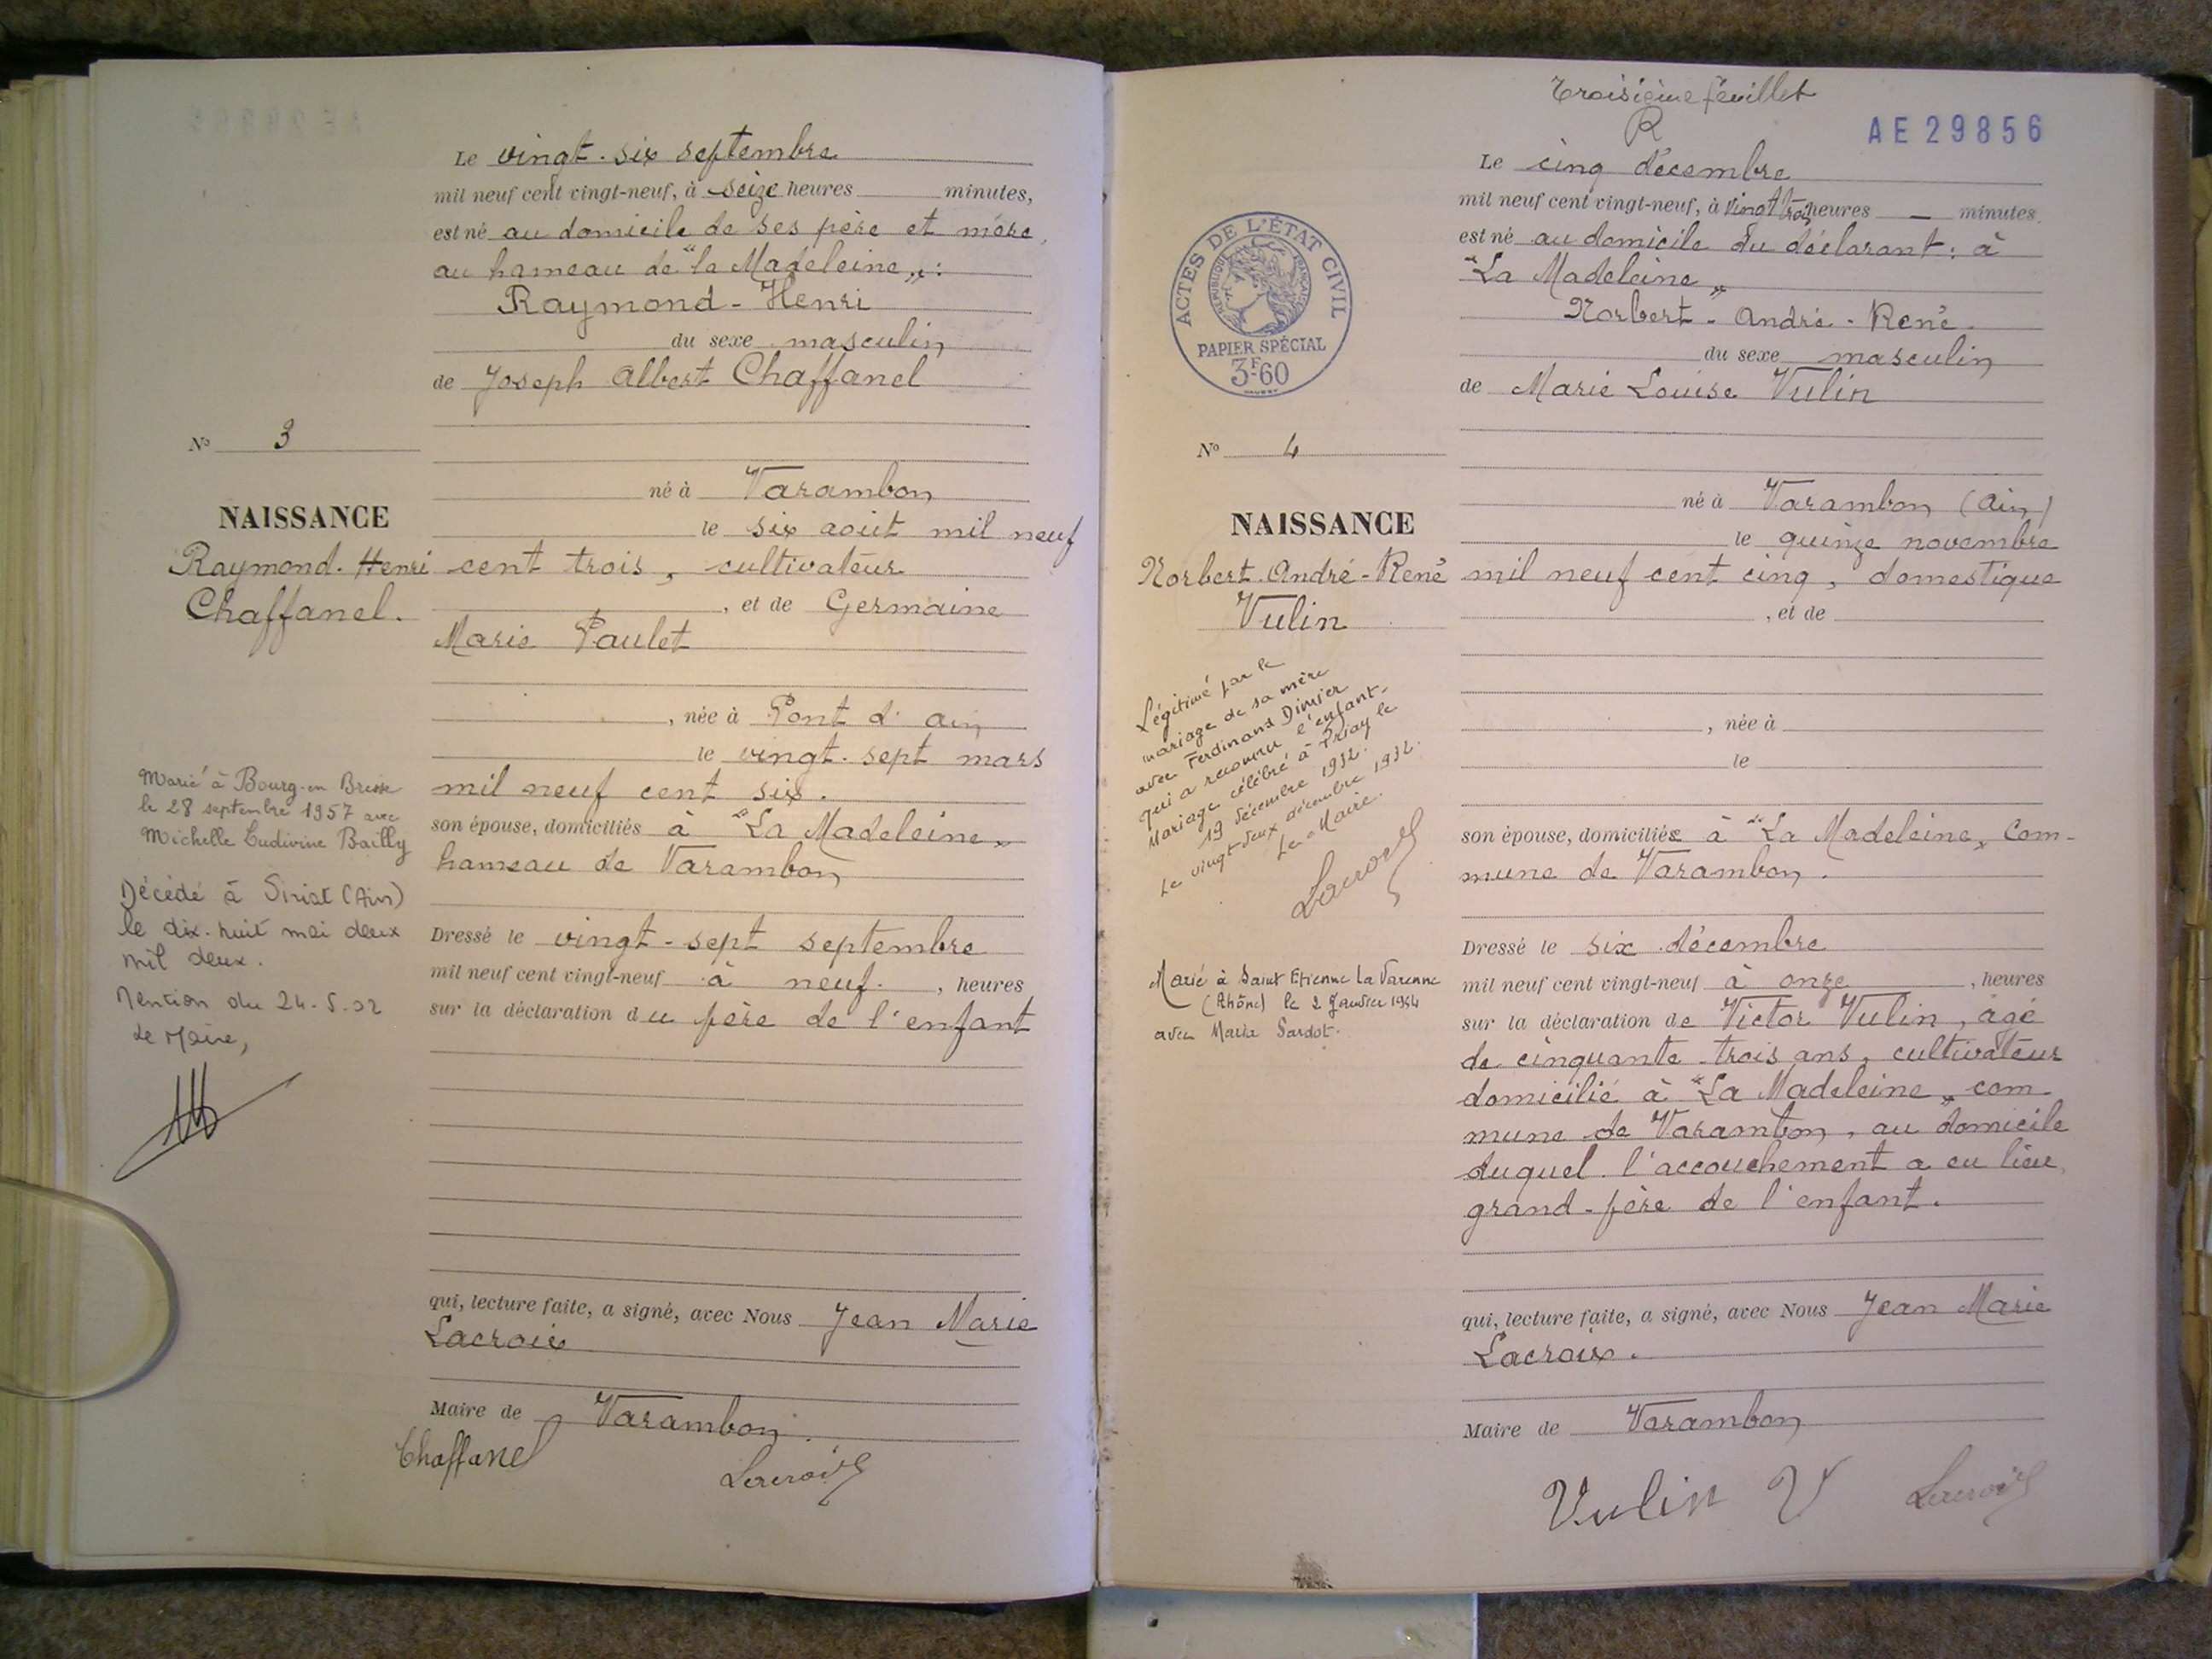 Le vingt-six septembre
mil neuf cent vingt-neuf, à seize heures minutes,
est né au domicile de ses père et mère,
au hameau de "la Madeleine„:
Raymond-Henri
du sexe masculin
de Joseph Albert Chaffanel
N° 3
né à Varambon
NAISSANCE
le six août mil neuf
Raymond-Henri
cent trois, cultivateur
Chaffanel.
, et de Germaine
Marie Paulet
, née à Pont d'ain
le vingt-sept mars
mil neuf cent six.
son épouse, domiciliés à "La Madeleine„
hameau de Varambon
Marié à Bourg-en Bresse
le 28 septembre 1957 avec
Michelle Ludivine Bailly
Décédé à Viriat (Ain)
le dix-huit mai deux
mil deux.
Mention du 24.5.02
Le Maire,
Dressé le vingt-sept septembre
mil neuf cent vingt-neuf à neuf , heures
sur la déclaration du père de l'enfant
qui, lecture faite, a signé, avec Nous Jean Marie
Lacroix
Maire de Varambon.
Chaffanel
Lacroix
Troisième feuillet
R
AE29856
Le cinq décembre
mil neuf cent vingt-neuf, à vingt trois heures — minutes
est né au domicile du déclarant: à
"La Madeleine„
Norbert-André-René
du sexe masculin
de Marie Louise Vulin
ACTES DE L'ÉTAT CIVIL
RÉPUBLIQUE FRANÇAISE
PAPIER SPÉCIAL
3F60
N° 4
né à Varambon (Ain)
NAISSANCE
le quinze novembre
Norbert-André-René
mil neuf cent cinq, domestique
Vulin
, et de
, née à
le
son épouse, domiciliée à "La Madeleine„ Com-
mune de Varambon.
Légitimé par le
mariage de sa mère
avec Ferdinand Dimier
qui a reconnu l'enfant-
Mariage célébré à Priay le
19 décembre 1932.
Le vingt-deux décembre 1932.
Le Maire.
Lacroix
Marié à Saint Etienne La Varenne
(Rhône) le 2 Janvier 1954
avec Marie Sardot.
Dressé le six décembre
mil neuf cent vingt-neuf à onze , heures
sur la déclaration de Victor Vulin, âgé
de cinquante-trois ans, cultivateur
domicilié à "La Madeleine„ com
mune de Varambon, au domicile
duquel l'accouchement a eu lieu,
grand-père de l'enfant.
qui, lecture faite, a signé, avec Nous Jean Marie
Lacroix.
Maire de Varambon
Vulin V
Lacroix